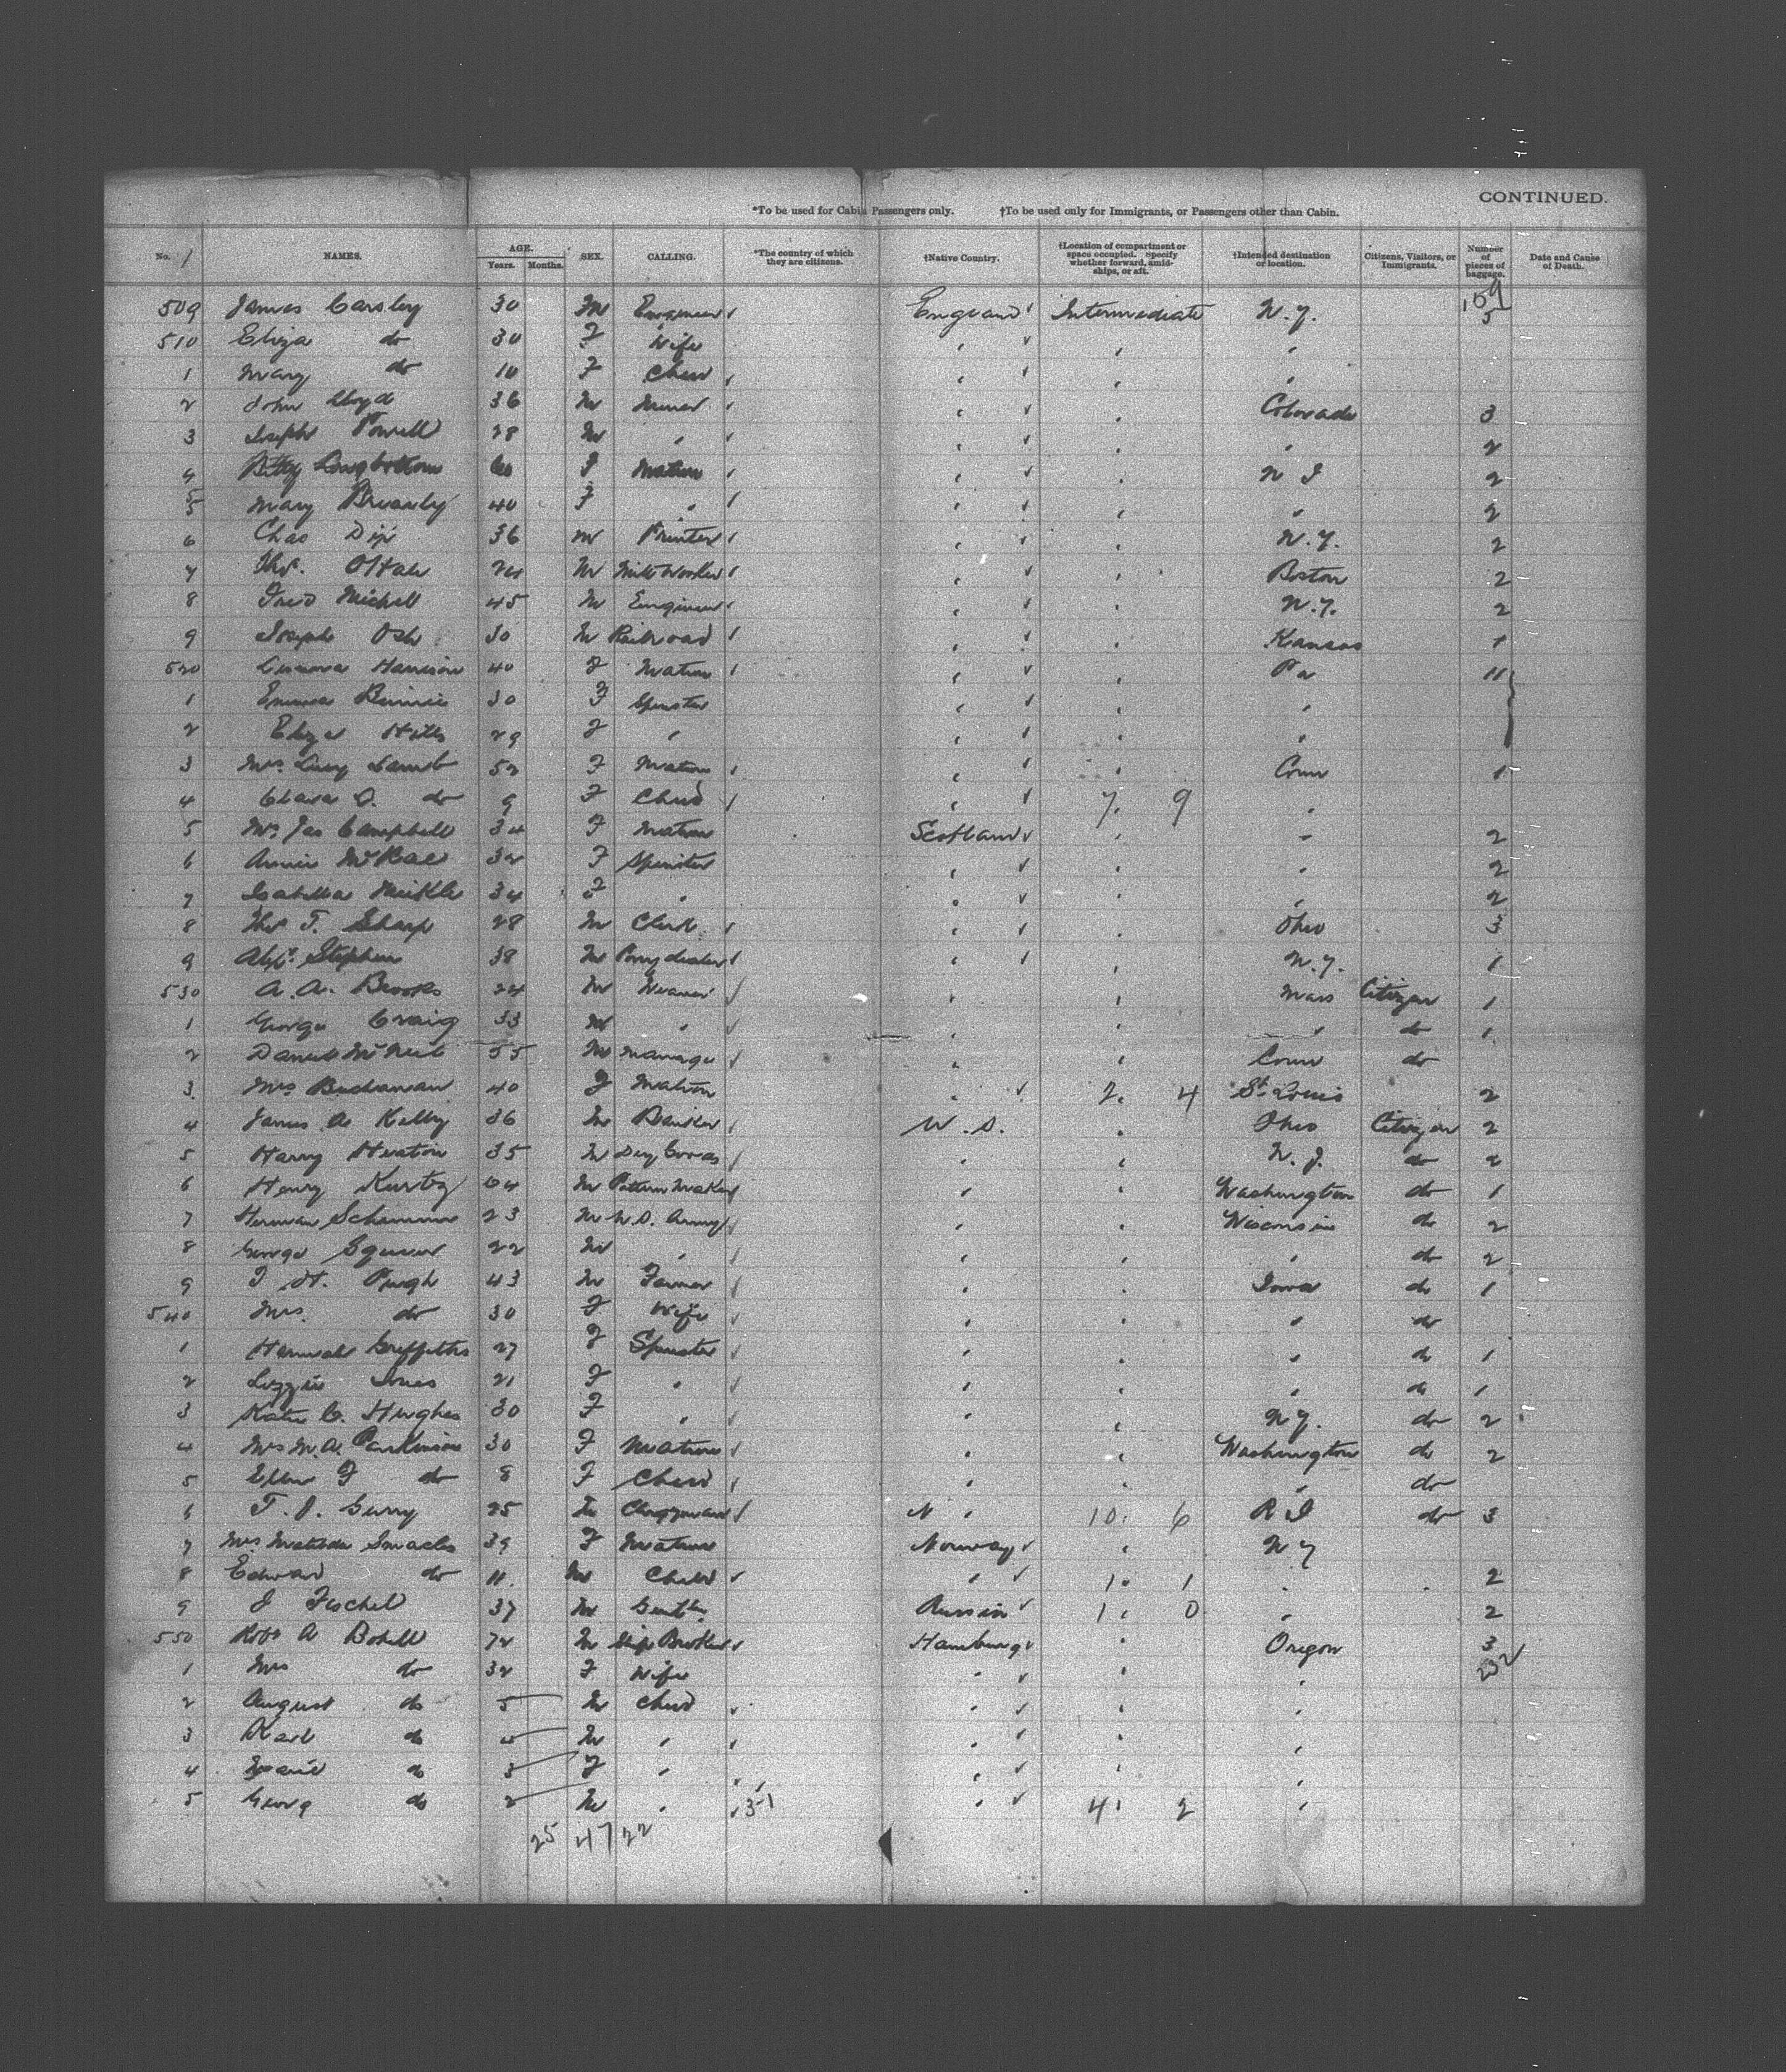 CONTINUED.
*To be used for Cabin Passengers only. †To be used only for Immigrants, or Passengers other than Cabin.
No. NAMES. AGE. Years. Months. SEX. CALLING. *The country of which they are citizens. †Native Country. †Location of compartment or space occupied. Specify whether forward, amidships, or aft. †Intended destination or location. Citizens, Visitors, or Immigrants. Number of pieces of baggage. Date and Cause of Death.
509 James Carsley 30 M Engineer England Intermediate N.Y. 5
510 Eliza do 30 F Wife " " "
1 Mary do 10 F Child " " "
2 John Lloyd 36 M Miner " " Colorado 3
3 Joseph Powell 28 M " " " " 2
4 Longbottom F Matron " " N J 2
5 Mary 40 F " " " " 2
6 Chas Dix 36 M Printer " " N.Y. 2
7 Thos. 24 M " " Boston 2
8 Fred Michell 45 M Engineer " " N.Y. 2
9 Joseph 30 M Railroad " " Kansas 1
520 Harrison 40 F Matron " " Pa 11
1 Emma Binnie 30 F Spinster " " "
2 Eliza Hills 29 F " " " "
3 Mrs. Lucy Lamb 52 F Matron " " Conn 1
4 Clara do 9 F Child " 7. 9 "
5 Mrs Jas Campbell 34 F Matron Scotland " " 2
6 Annie McRae 32 F Spinster " " " 2
7 Isabella Meikle 34 F " " " " 2
8 Thos T. Sharp 28 M Clerk " " Ohio 3
9 Alexr. Stephen 38 M Pony dealer " " N.Y. 1
530 A. A. Brooks 24 M Weaver " " Mass Citizen 1
1 George Craig 33 M " " " " do 1
2 Daniel McNeil 55 M Manager " " Conn do
3 Mrs Buchanan 40 F Matron " 2. 4 St. Louis 2
4 James A Kelly 36 M U.S. " Ohio Citizen 2
5 Harry Heaton 35 M Dry Goods " " N.J. do 2
6 Henry Kurtz 64 M Pattern Maker " " Washington do 1
7 Herman 23 M U.S. Army " " Wisconsin do 2
8 George 22 M " " " " do 2
9 Pugh 43 M Farmer " " Iowa do 1
540 Mrs. do 30 F Wife " " " do
1 Hannah Griffiths 27 F Spinster " " " do 1
2 Lizzie Jones 21 F " " " " do 1
3 Katie C. Hughes 30 F " " " N.Y. do 2
4 Mrs M.A. Parkinson 30 F Matron " " Washington do 2
5 Ellen F do 8 F Child " " " do
6 T. J. 25 M Clergyman " " 10. 6 R I do 3
7 Mrs Matilda 39 F Matron Norway " N Y
8 Edward do 11 M Child " 1. 1 " 2
9 J Fischel 37 M Russia 1. 0 " 2
550 Robt A 72 M Ship Broker Hamburg " Oregon 3
1 Mrs do 32 F Wife " " " 232
2 August do 5 M Child " " "
3 Karl do 4 M " " " "
4 do 3 F " " " "
5 Georg do 2 M " 3-1 " 4. 2 "
25 47 22